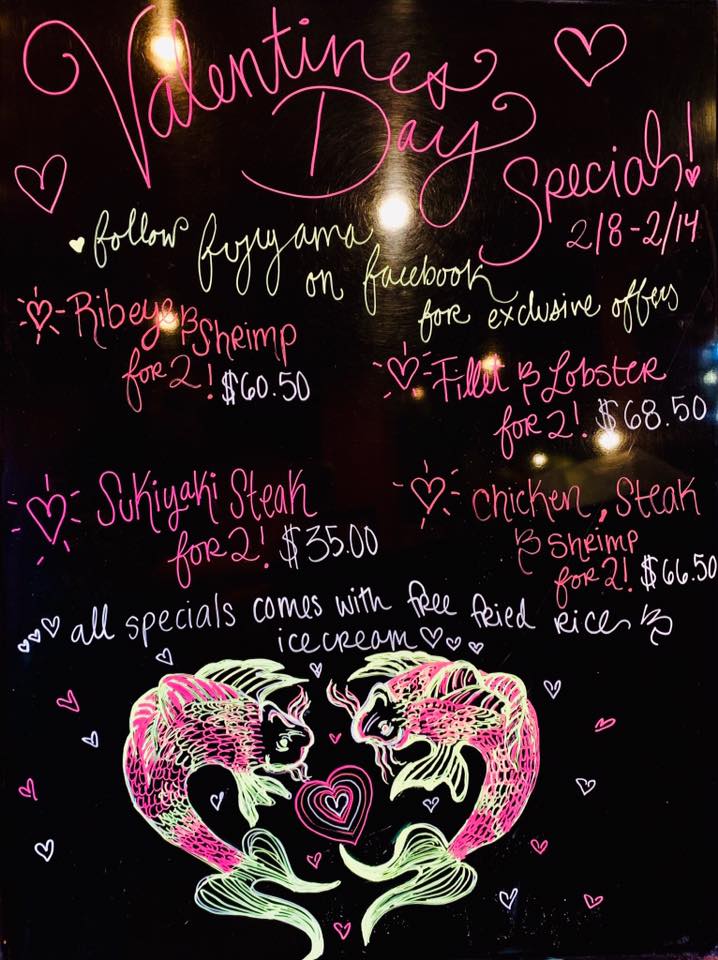 Valentines
Day
Specials!
2/8-2/14
follow fujiyama
on facebook
for exclusive offers
Ribeye & Shrimp
for 2! $60.50
Fillet & Lobster
for 2! $68.50
Sukiyaki Steak
for 2! $35.00
chicken, Steak
& Shrimp
for 2! $66.50
all specials comes with free fried rice &
icecream